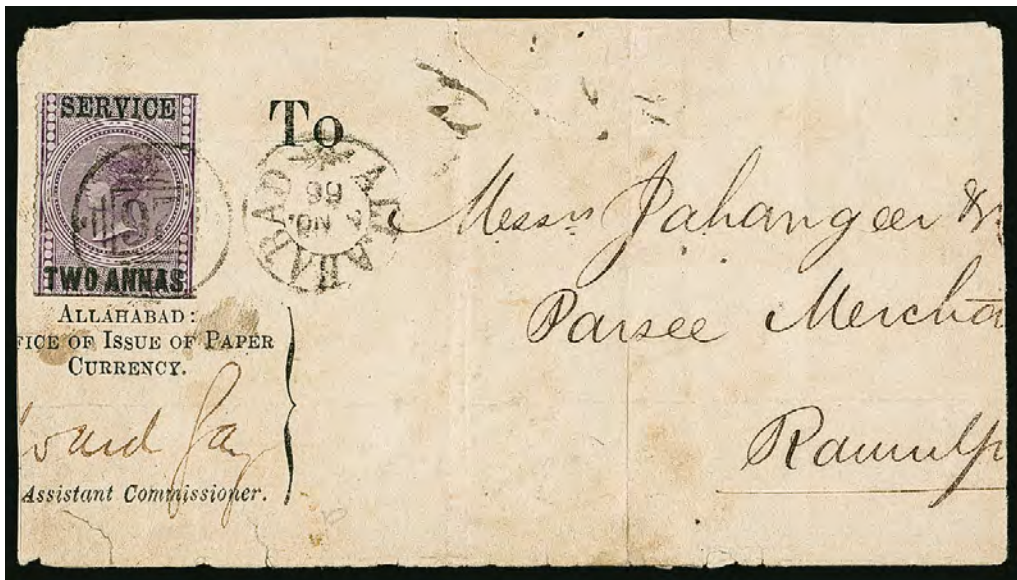 SERVICE
TWO ANNAS
To
ALLAHABAD
66
ALLAHABAD:
FICE OF ISSUE OF PAPER
CURRENCY.
ward Gay
Assistant Commissioner.
Messrs Jahangeer &
Parsee Mercha
Rawulp